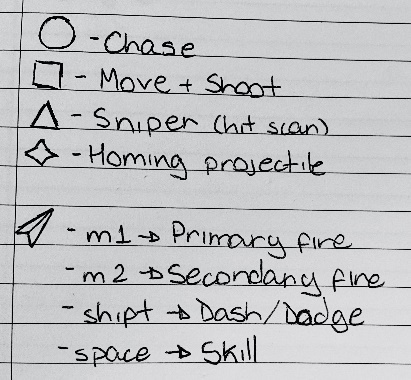 - Chase
- Move + Shoot
- Sniper (hit scan)
- Homing projectile
- m1 → Primary fire
- m2 → Secondary fire
- shift → Dash/Dodge
- space → Skill